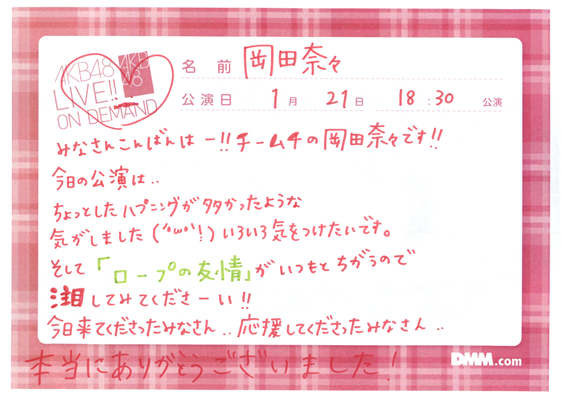 AKB48
LIVE!!
ON DEMAND
AKB
48
名前 岡田奈々
公演日 1月 21日 18:30 公演
みなさんこんばんはー!!チーム4の岡田奈々です!!
今日の公演は..
ちょっとしたハプニングが多かったような
気がしました(^ω^;)いろいろ気をつけたいです。
そして「ロープの友情」がいつもとちがうので
注目してみてくださーい!!
今日来てくださったみなさん..応援してくださったみなさん..
本当にありがとうございました!
DMM.com